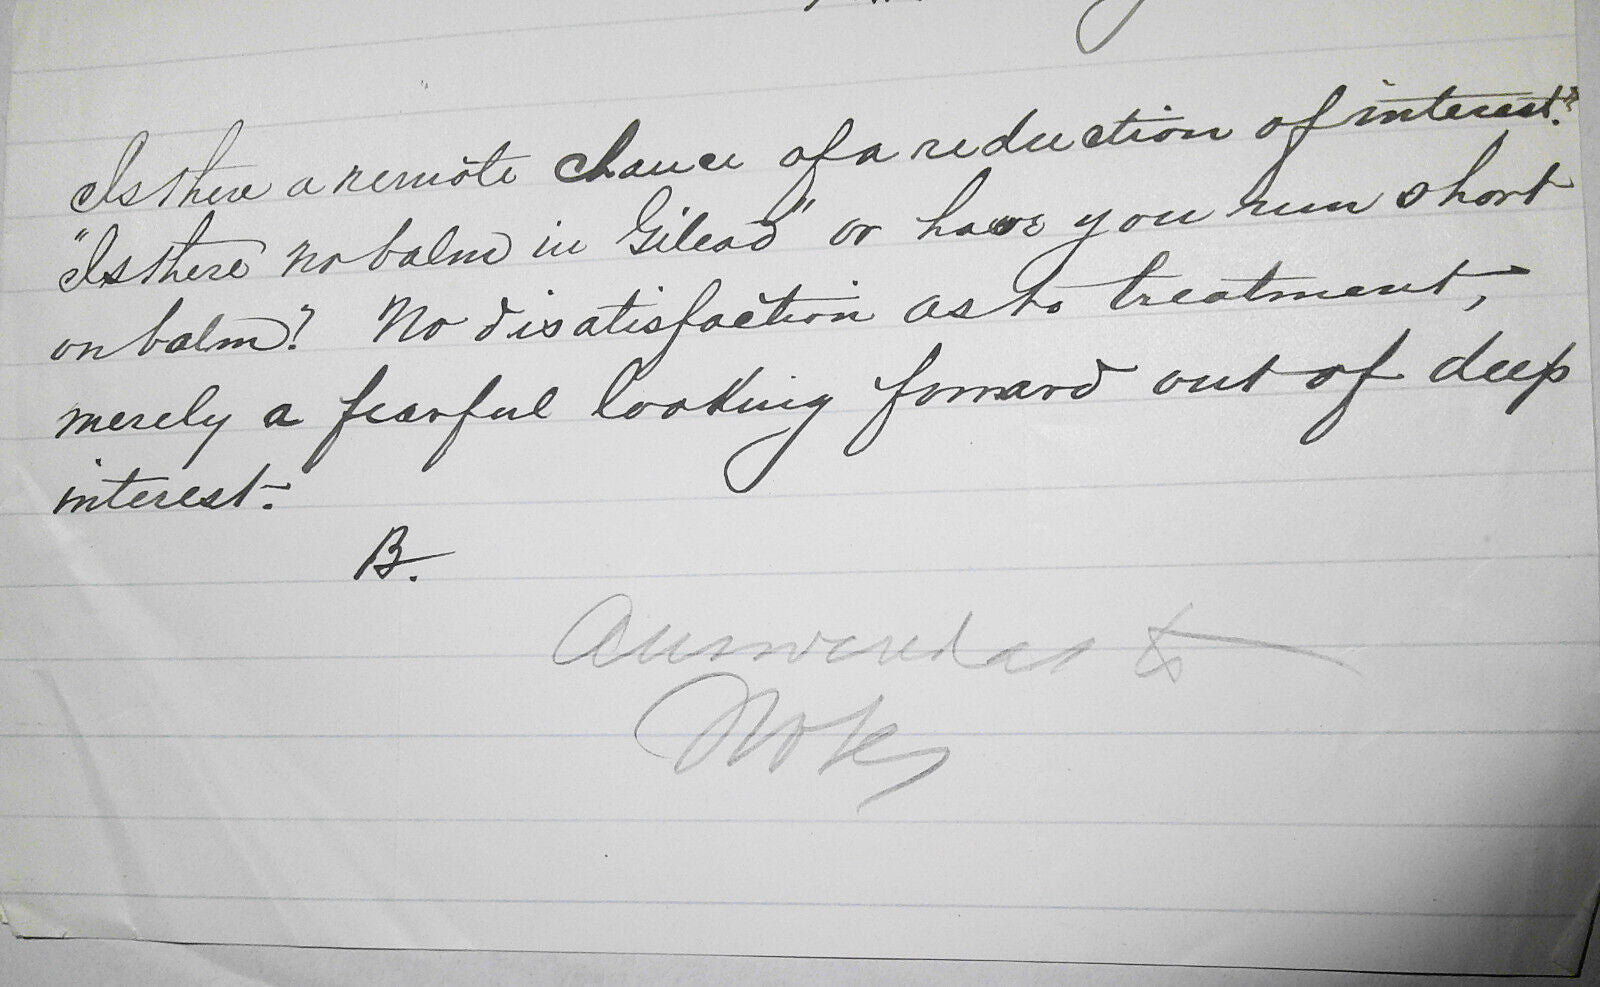 Is there a remote chance of a reduction of interest?
"Is there no balm in Gilead" or have you run short
on balm? No disatisfaction as to treatment,
merely a fearful looking forward out of deep
interest.
B.
Answered as to
Notes